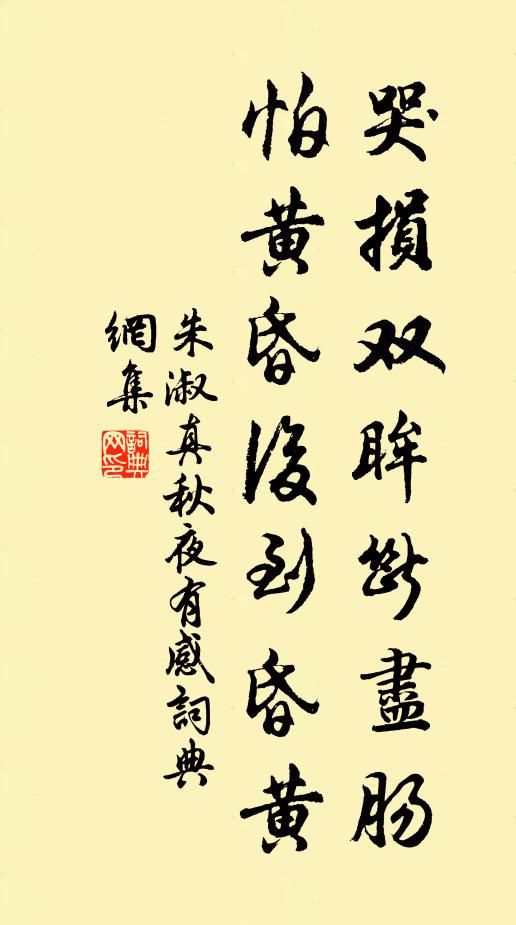 哭損双眸断盡肠
怕黄昏後到昏黄
朱淑真秋夜有感詞典
網集
詞典網印